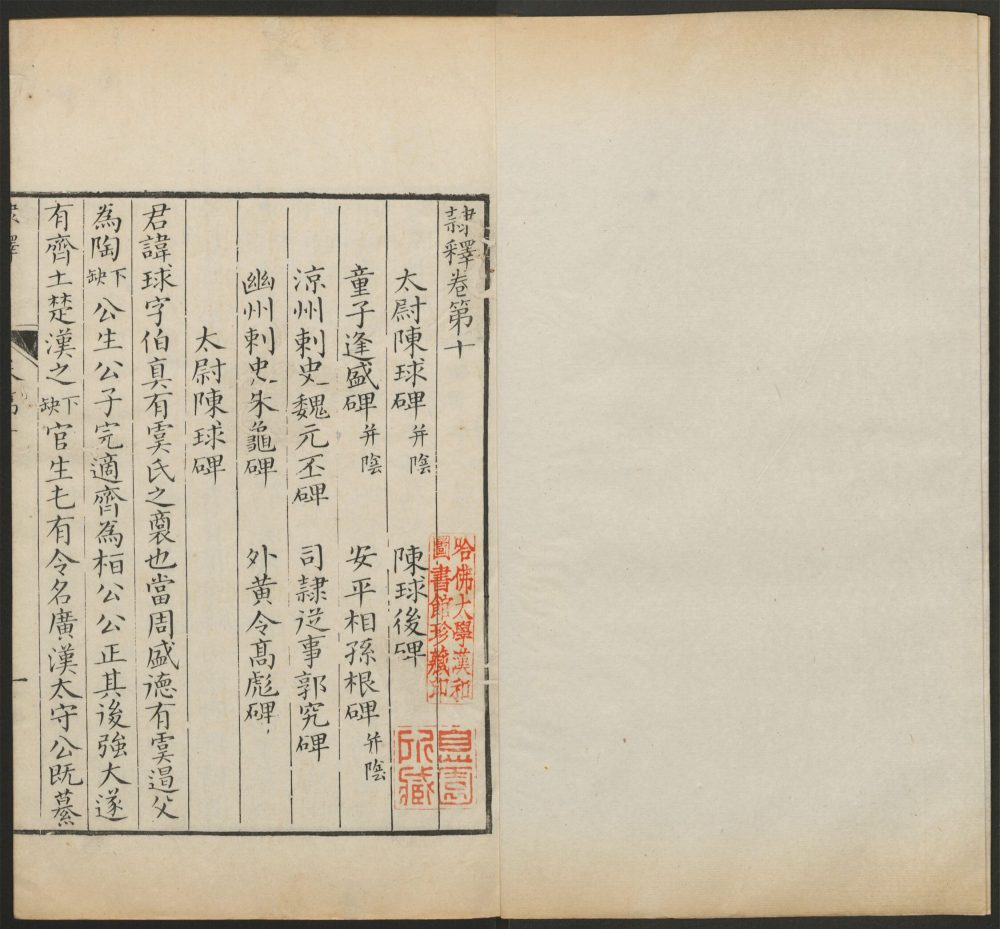 隷釋卷第十
太尉陳球碑并陰 陳球後碑
童子逢盛碑并陰 安平相孫根碑并陰
涼州刺史魏元丕碑 司隷從事郭究碑
幽州刺史朱龜碑 外黄令髙彪碑
太尉陳球碑
君諱球字伯真有虞氏之裔也當周盛德有虞遏父
為陶下缺公生公子完適齊為桓公公正其後強大遂
有齊土楚漢之下缺官生七有令名廣漢太守公既纂
隷釋
一
哈佛大學漢和
圖書館珍藏印
息園
所藏